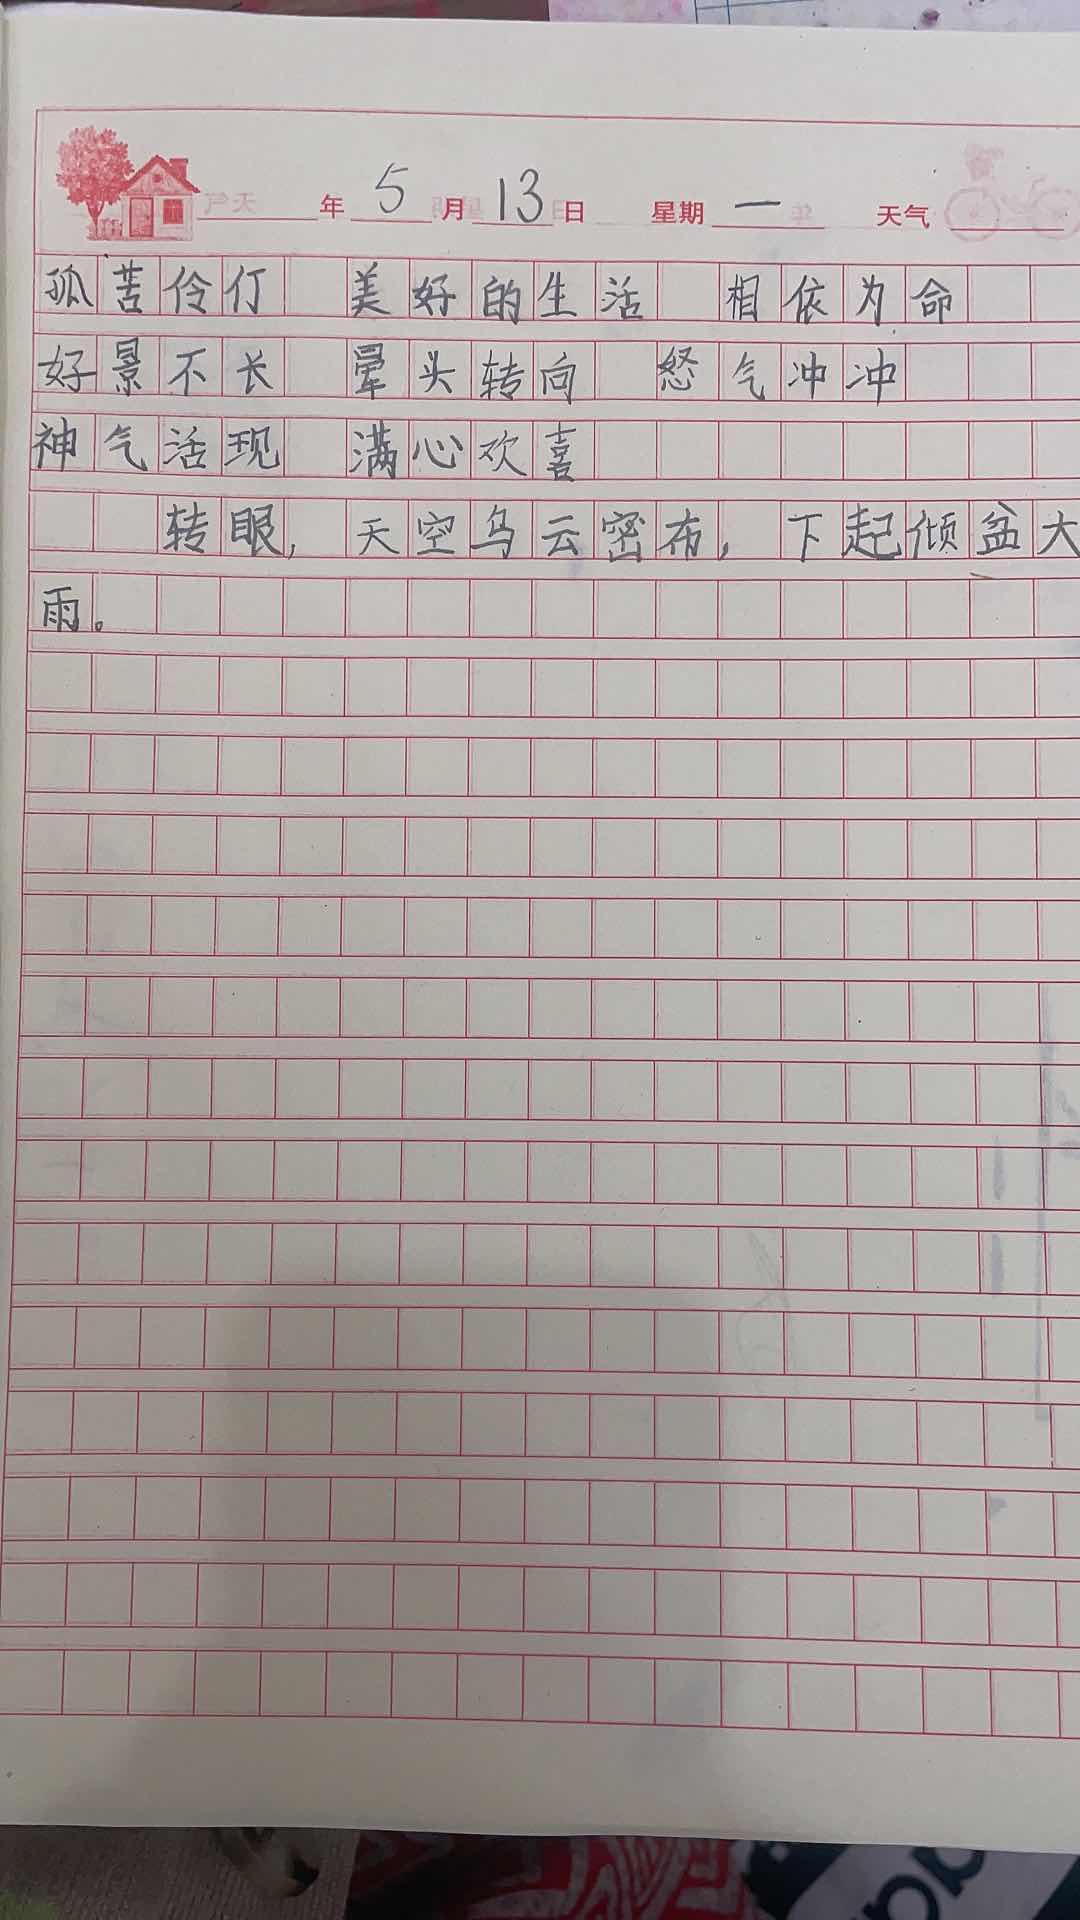 年 5 月 13 日 星期 一 天气
孤苦伶仃 美好的生活 相依为命
好景不长 晕头转向 怒气冲冲
神气活现 满心欢喜
转眼，天空乌云密布，下起倾盆大
雨。